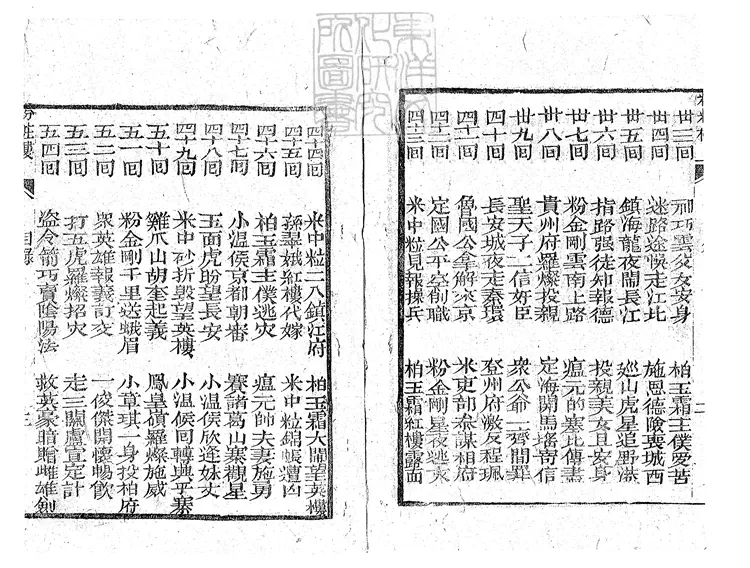 東洋文
化研究
所圖書
卅三回 祁巧雲父女安身 柏玉霜主僕受苦
卅四回 迷路途悮走江北 施恩德險喪城西
卅五回 鎮海龍夜鬧長江 巡山虎星追野洪
卅六回 指路强徒知報德 投親美女且安身
卅七回 粉金剛雲南上路 瘟元的塞北傳書
卅八回 貴州府羅燦投親 定海関馬瑤寄信
卅九回 聖天子二信奸臣 衆公爺一齊問罪
四十回 長安城夜走秦環 登州府激反程珮
四十一回 魯國公拿解來京 米吏部叅謀相府
四十二回 定國公平空削職 粉金剛星夜逃灾
四十三回 米中粒見報操兵 柏玉霜紅樓露面
四十四回 米中粒二入鎮江府 柏玉霜大閙望英樓
四十五回 孫翠娥紅樓代嫁 米中粒錦帳遭凶
四十六回 柏玉霜主僕逃灾 瘟元帥夫妻施勇
四十七回 小温侯京都朝審 賽諸葛山寨觀星
四十八回 玉面虎盼望長安 小温侯欣逢妹丈
四十九回 米中砂折毀望英樓 小温侯回轉興平寨
五十回 雞爪山胡奎起義 鳳凰嶺羅燦施威
五一回 粉金剛千里送蛾眉 小章琪一身投柏府
五二回 衆英雄報義訂交 一俊傑開懷暢飲
五三回 打五虎羅燦招灾 走三關盧宣定計
五四回 盜令箭巧賣陰陽法 救英豪暗贈雌雄劍
粉粧樓 目録 三